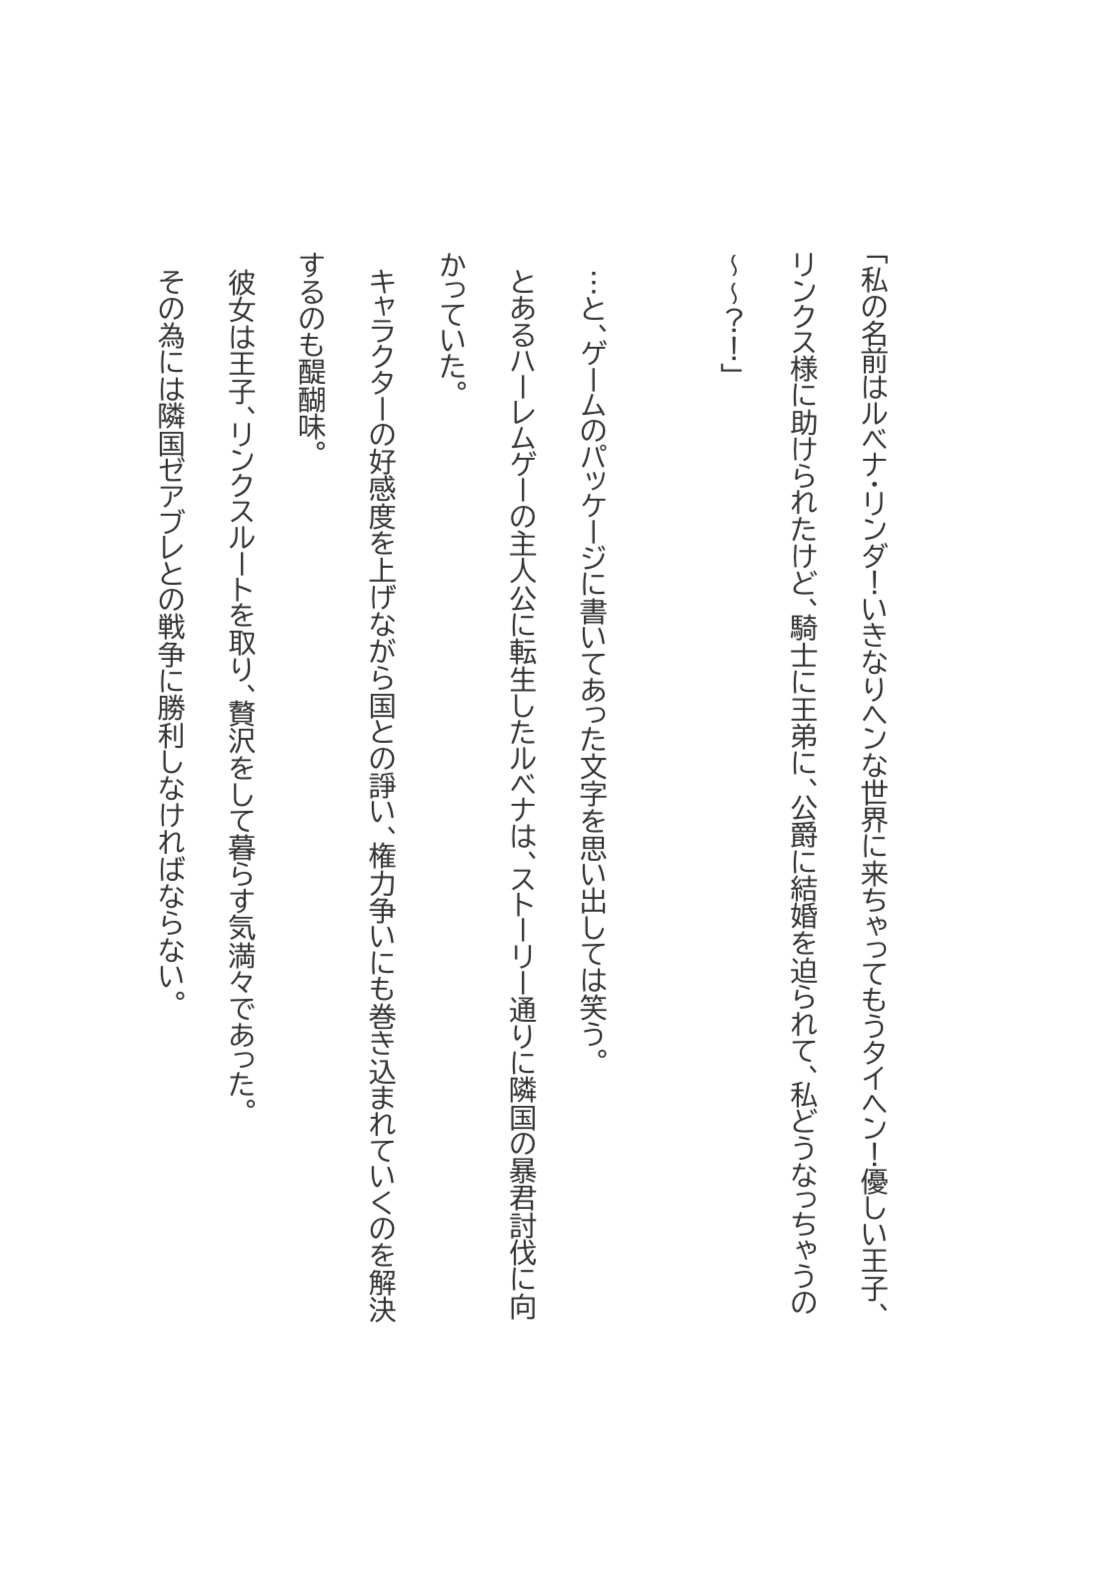 「私の名前はルベナ・リンダ！いきなりヘンな世界に来ちゃってもうタイヘン！優しい王子、
リンクス様に助けられたけど、騎士に王弟に、公爵に結婚を迫られて、私どうなっちゃうの
～～？！」
…と、ゲームのパッケージに書いてあった文字を思い出しては笑う。
とあるハーレムゲーの主人公に転生したルベナは、ストーリー通りに隣国の暴君討伐に向
かっていた。
キャラクターの好感度を上げながら国との諍い、権力争いにも巻き込まれていくのを解決
するのも醍醐味。
彼女は王子、リンクスルートを取り、贅沢をして暮らす気満々であった。
その為には隣国ゼアブレとの戦争に勝利しなければならない。